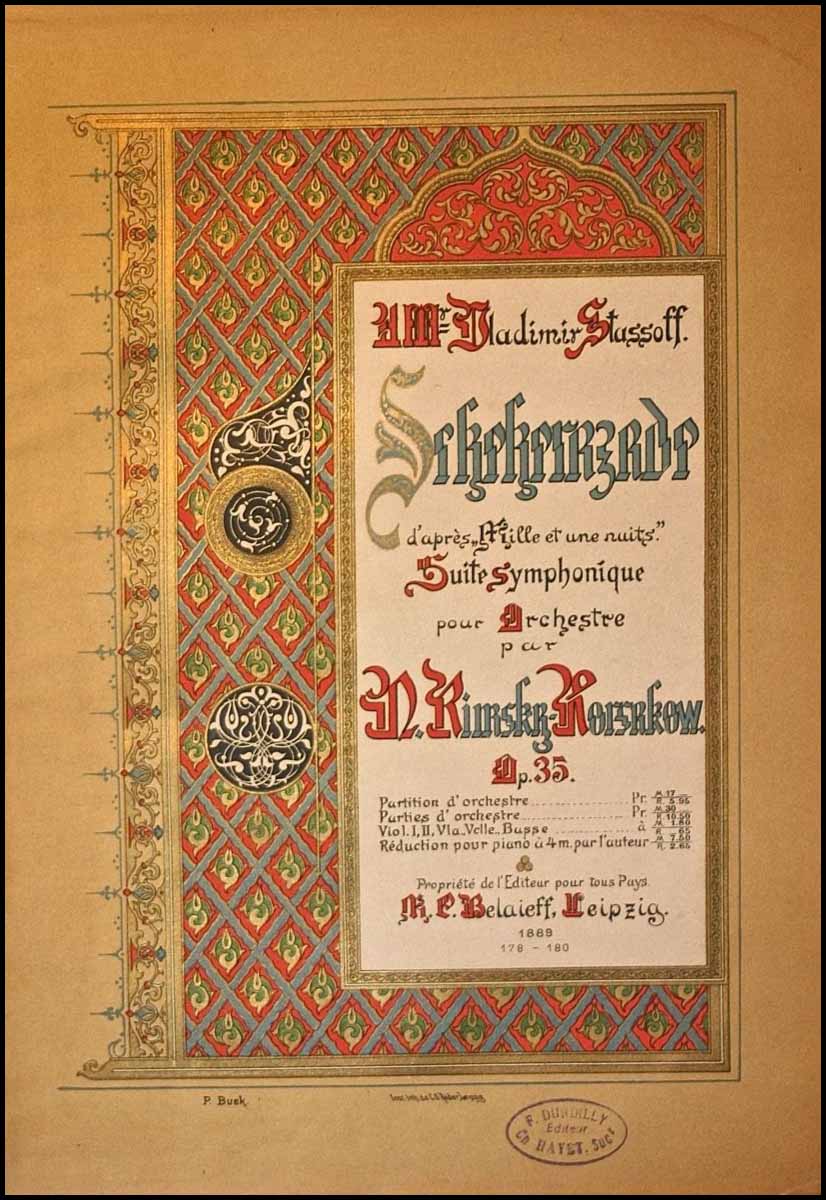 A Mr Vladimir Stassoff.
Scheherazade
d'après „Mille et une nuits.”
Suite symphonique
pour Orchestre
par
N. Rimsky-Korsakow.
Op. 35.
Partition d'orchestre.............. Pr. M. 17 R. 5.95
Parties d'orchestre.............. Pr. M. 30 R. 10.50
Viol. I, II, Vla, Vclle., Basse .......... à M. 1.80 R. 65
Réduction pour piano à 4 m. par l'auteur M. 7.50 R. 2.65
Propriété de l'Editeur pour tous Pays.
M. P. Belaieff, Leipzig.
1889
178 - 180
P. Buek
Inst. lith. de C.G. Röder, Leipzig.
Editeur
Ch HAYET. Sucr